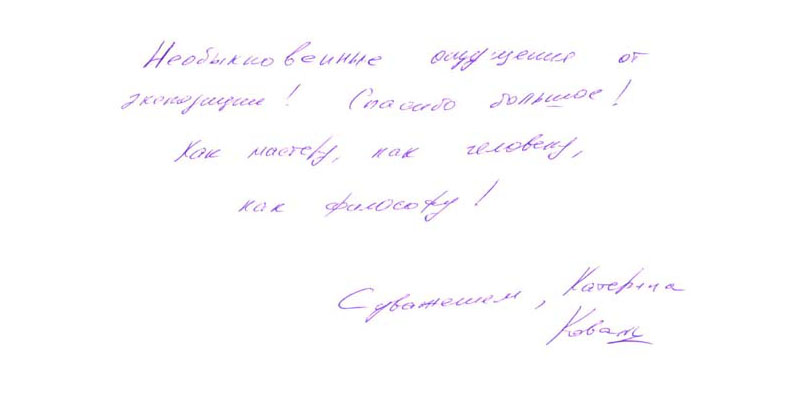 Необыкновенные ощущения от
экспозиции! Спасибо большое!
Как мастеру, как человеку,
как философу!
С уважением, Катерина